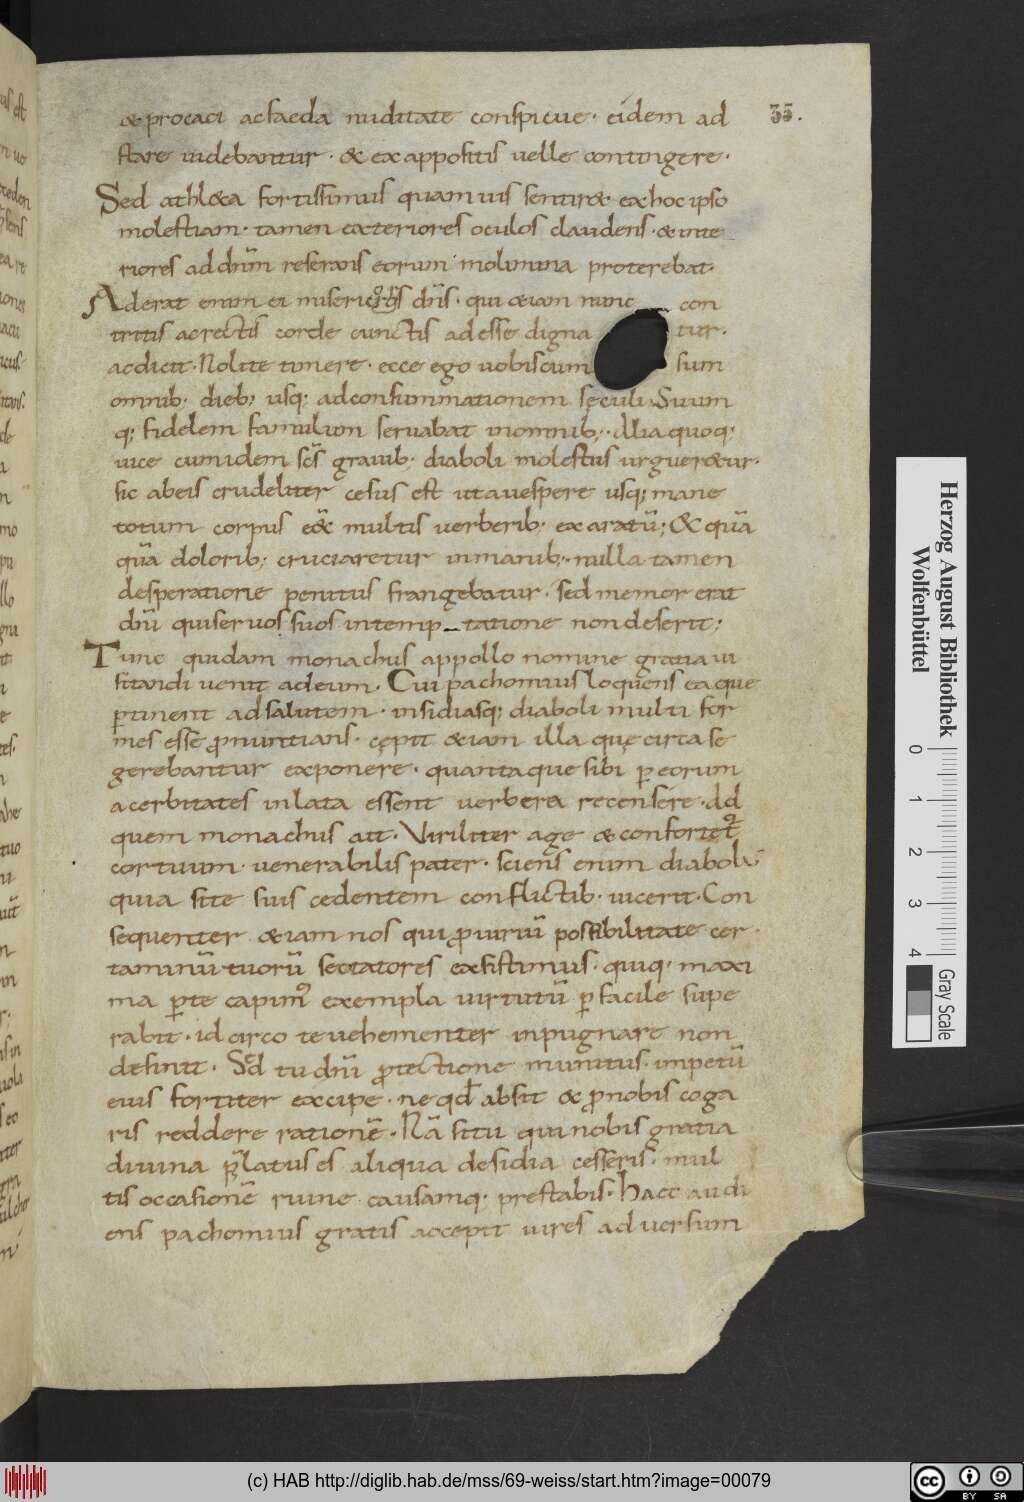 & procaci acfaeda nuditate conspicue· eidem ad 35.
stare uidebantur· & ex appositis uelle contingere·
Sed athl&a fortissimus quamuis sentir& exhoc ipso
molestiam· tamen exteriores oculos claudens· & inte
riores ad dnm̄ reserans eorum molimina proterebat·
Aderat enim ei dn̄s· qui &iam nunc con
tritis acrectis corde cunctis adesse digna tur·
acdicit· Nolite timere· ecce ego uobiscum sum
omnib; dieb; usq; adconsummationem sęculi Suum
q; fidelem famulum seruabat inomnib;· Alia quoq;
uice cumidem sc̄s grauib; diaboli molestiis urguer&ur·
sic abeis crudeliter cesus est utauespere usq; mane
totum corpus multis uerberib; exaratū; & quā
quā dolorib; cruciaretur inmanib;· nulla tamen
desperatione penitus frangebatur· sed memor erat
dn̄i quiseruos suos intemp tatione nondeserit;
Tunc quidam monachus appollo nomine gratia ui
sitandi uenit adeum· Cui pachomius loquens eaque
ꝑtinent adsalutem· insidiasq; diaboli multi for
mes esse ꝓnuntians· cępit &iam illa quę circa se
gerebantur exponere· quantaque sibi ꝑ eorum
acerbitates inlata essent uerbera recensere· Ad
quem monachus ait· Viriliter age & confortet᷑
cortuum· uenerabilis pater· sciens enim diabolus
quia site suis cedentem conflictib· uicerit· Con
sequenter &iam nos qui ꝓ uiriū possibilitate cer
taminū tuorū sectatores exsistimus· quiq; maxi
ma ꝑte capim᷒ exempla uirtutū ꝑ facile supe
rabit· idcirco te uehementer inpugnare non
desinit· Sed tu dn̄i ꝓtectione munitus· impetū
eius fortiter excipe· ne qd̄ absit & ꝓ nobis coga
ris reddere rationē· Nā situ qui nobis gratia
diuina p̄latus es aliqua desidia cesseris· mul
tis occasionē ruine causamq; prestabis· Haec audi
ens pachomius gratis accepit uires aduersum
Herzog August Bibliothek
Wolfenbüttel
0 1 2 3 4
Gray Scale
(c) HAB http://diglib.hab.de/mss/69-weiss/start.htm?image=00079
cc BY SA